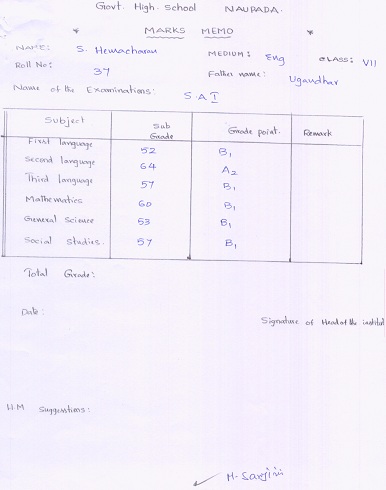 Govt. High. School NAUPADA.
* MARKS MEMO *
NAME: S. Hemacharan MEDIUM: Eng CLASS: VII
Roll No: 37 Father name: Ugandhar
Name of the Examinations: S.A I
Subject Sub Grade Grade point. Remark
First language 52 B1
Second language 64 A2
Third language 57 B1
Mathematics 60 B1
General Science 53 B1
Social studies. 57 B1
Total Grade:
Date:
Signature of Head of the institut
H.M Suggestions:
M. Sarojini